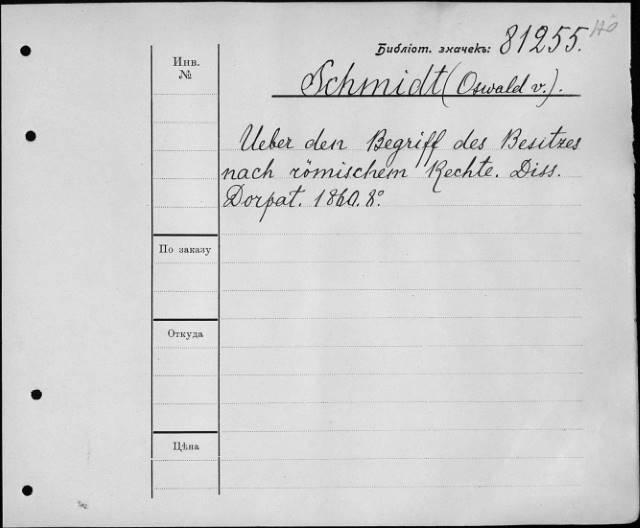 Библіот. значекъ: 81255.
Инв.
№
Schmidt (Oswald v.).
Ueber den Begriff des Besitzes
nach römischem Rechte. Diss.
Dorpat. 1860. 8º
По заказу
Откуда
Цѣна